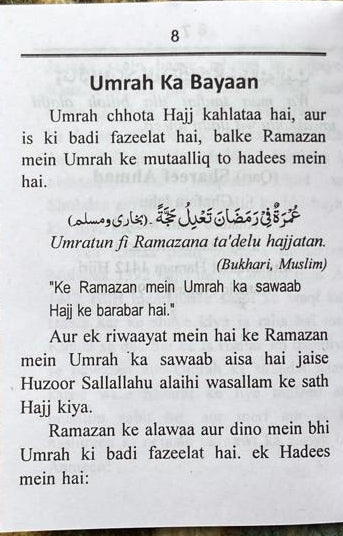 8
Umrah Ka Bayaan
Umrah chhota Hajj kahlataa hai, aur
is ki badi fazeelat hai, balke Ramazan
mein Umrah ke mutaalliq to hadees mein
hai.
عُمْرَةٌ فِیْ رَمَضَانَ تَعْدِلُ حَجَّةً ۔ (بخاری و مسلم)
Umratun fi Ramazana ta'delu hajjatan.
(Bukhari, Muslim)
"Ke Ramazan mein Umrah ka sawaab
Hajj ke barabar hai."
Aur ek riwaayat mein hai ke Ramazan
mein Umrah ka sawaab aisa hai jaise
Huzoor Sallallahu alaihi wasallam ke sath
Hajj kiya.
Ramazan ke alawaa aur dino mein bhi
Umrah ki badi fazeelat hai. ek Hadees
mein hai: